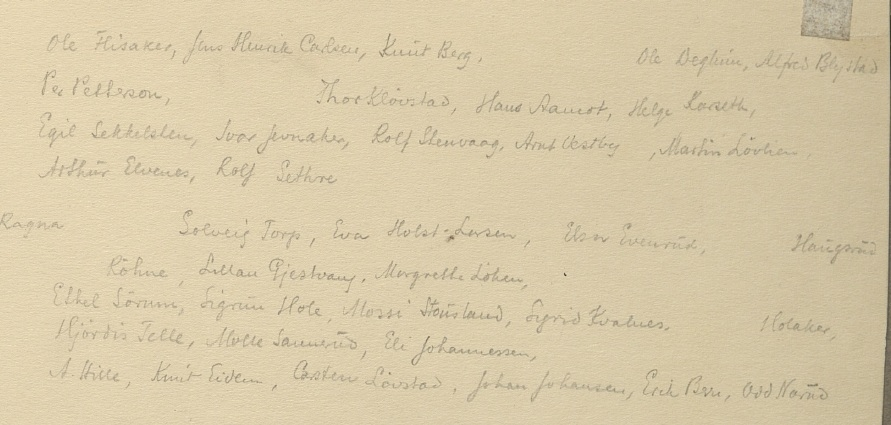 Ole Flisaker, Jens Henrik Carlsen, Knut Berg, Ole Deglum, Alfred Blystad
Per Petterson, Thor Klövstad, Hans Aamot, Helge Karseth,
Egil Sekkelsten, Ivar Jevnaker, Rolf Stenvaag, Arnt Østby, Martin Lövlien,
Arthur Elvenes, Rolf Sethre
Ragna Solveig Torp, Eva Holst-Larsen, Elsa Evenrud, Haugsrud
Röhne, Lillan Gjestvang, Margrethe
Ethel Sörum, Sigrun Hole, Mossi Stousland, Sigrid Kvalnes, Holaker,
Hjördis Telle, Molle Sannerud, Eli Johannessen,
A. Hille, Knut Eidem, Carsten Lövstad, Johan Johansen, Erik Bru, Odd Narud